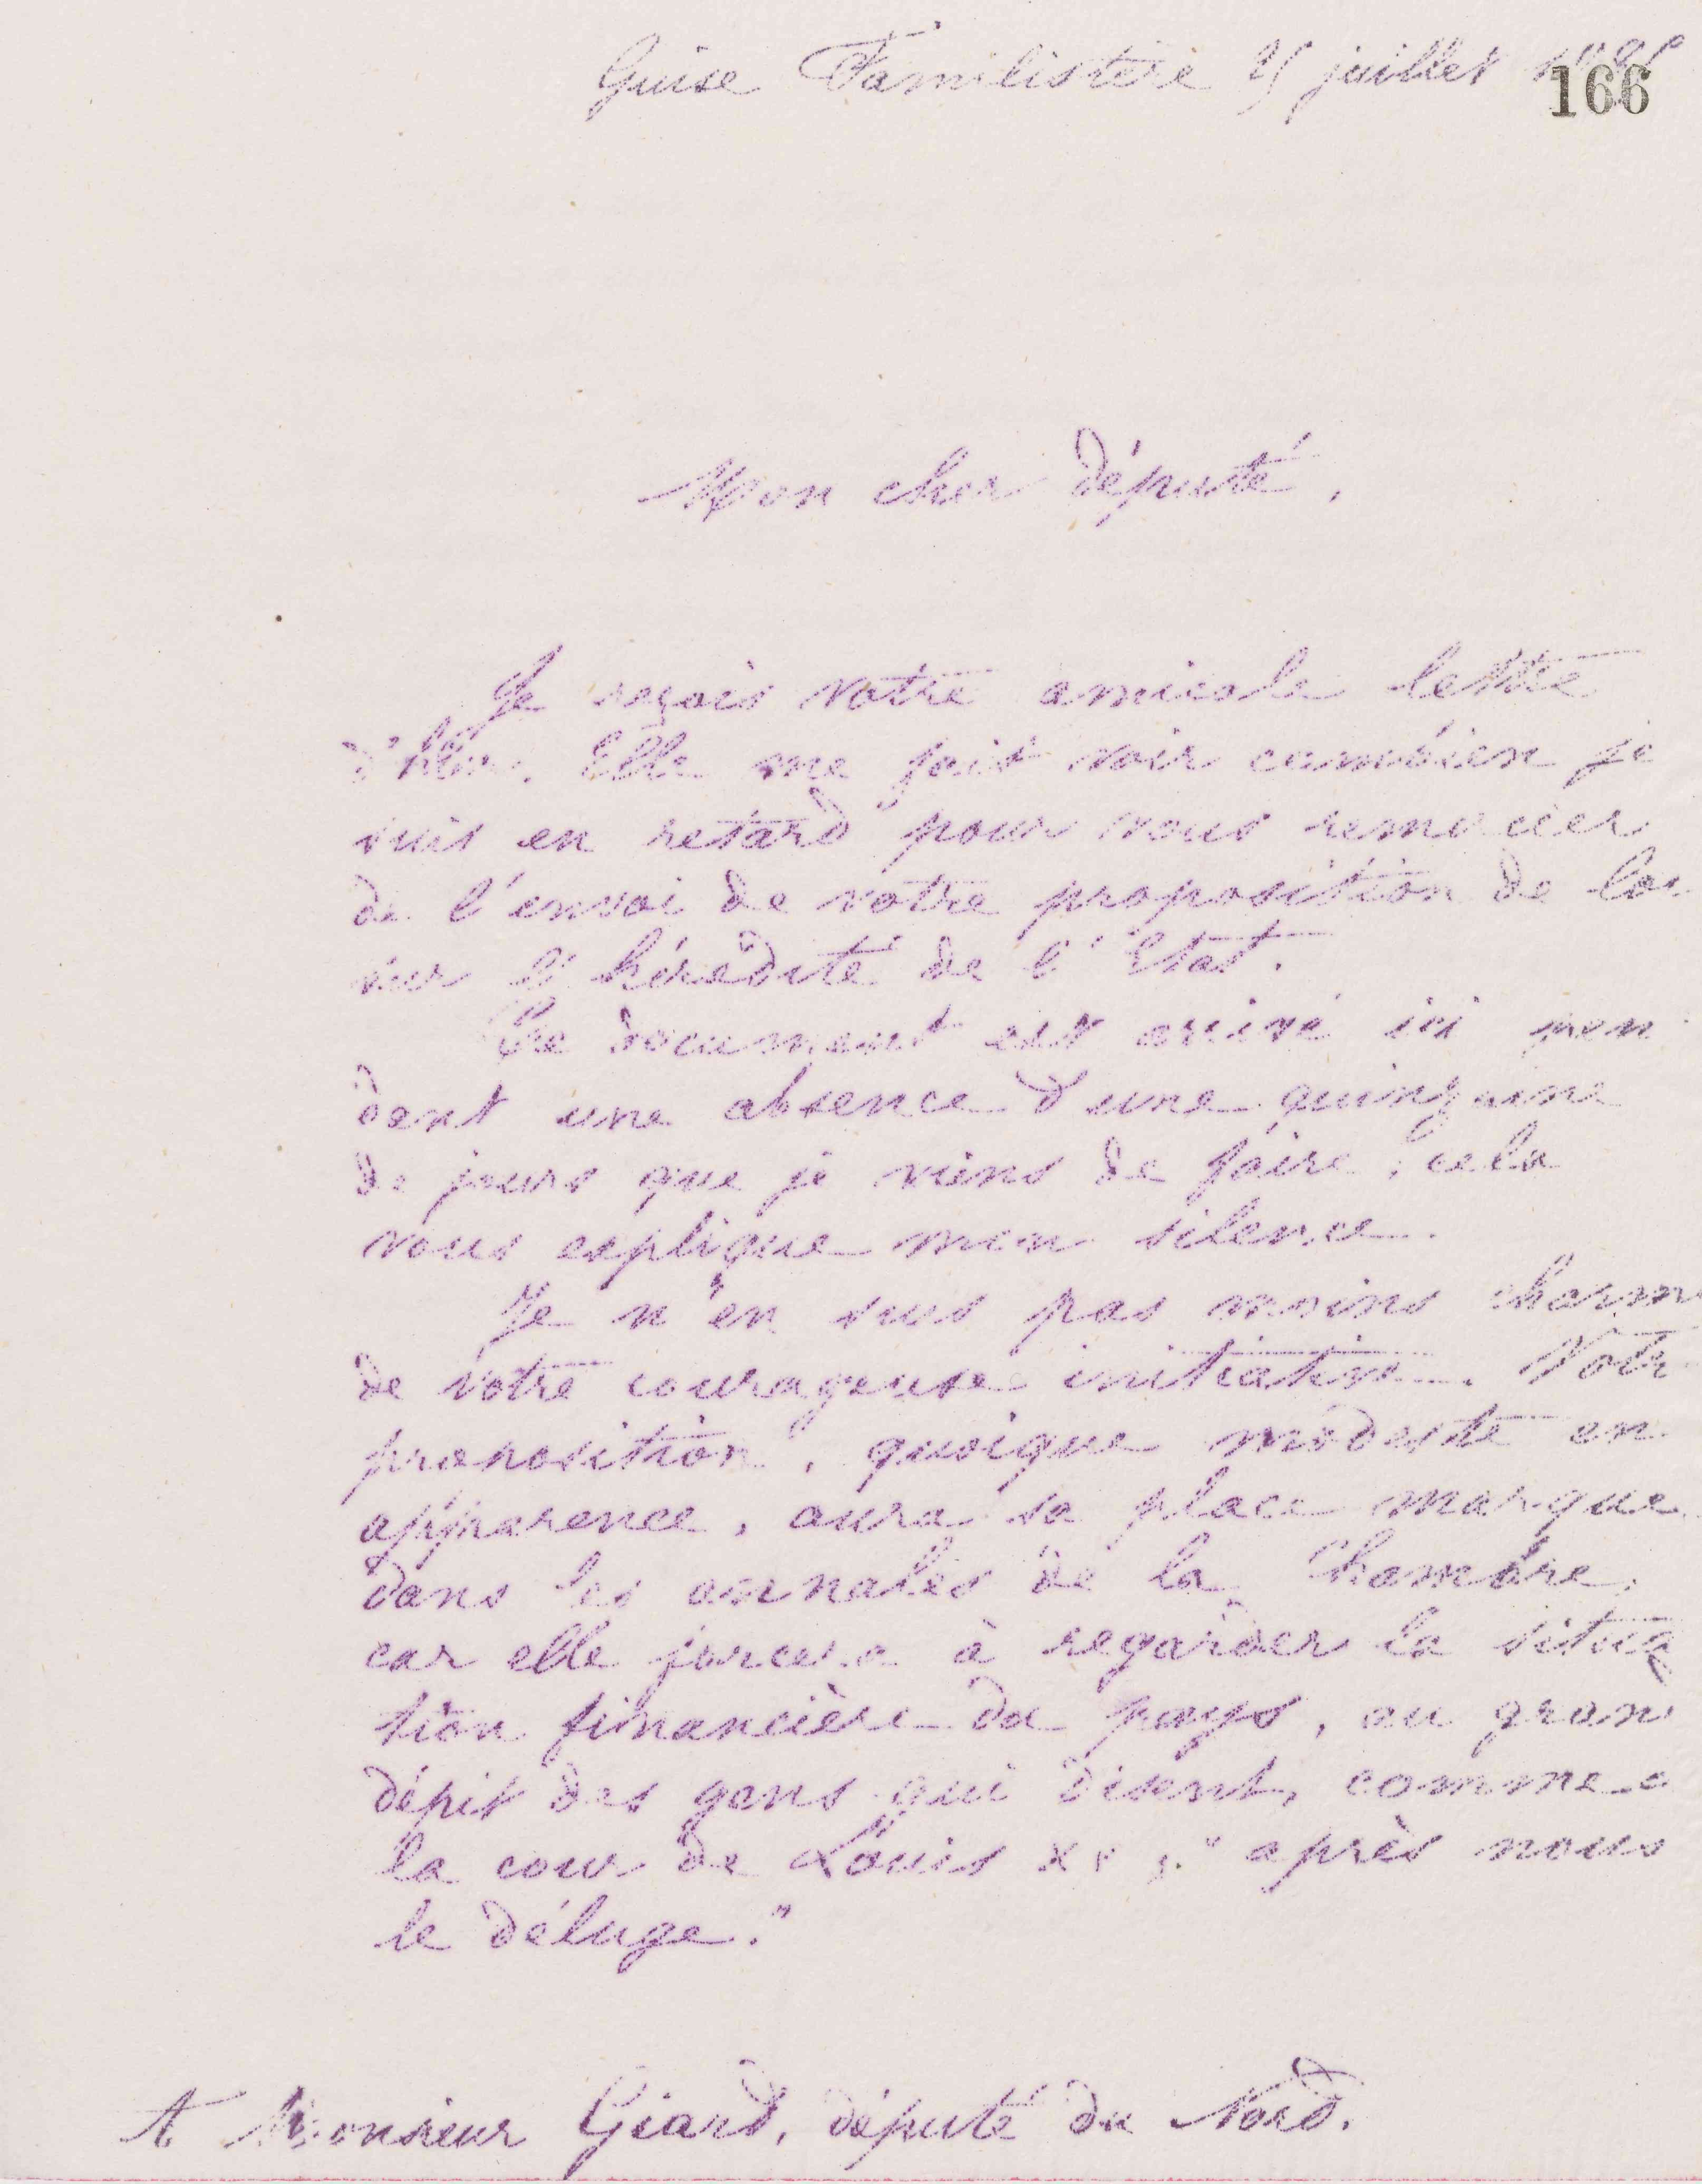 Guise Familistère juillet
166
Mon cher député,
Je reçois votre amicale lettre
d'hier. Elle me fait voir combien je
suis en retard pour vous remercier
de l'envoi de votre proposition de loi
sur l'hérédité de l'État.
Ce document est arrivé ici pen
dant une absence d'une quinzaine
de jours que je viens de faire ; cela
vous explique mon silence.
Je n'en suis pas moins charmé
de votre courageuse initiative. Votre
proposition, quoique modeste en
apparence, aura sa place marquée
dans les annales de la Chambre,
car elle forcera à regarder la situa
tion financière du pays, au grand
dépit des gens qui disent, comme à
la cour de Louis XV : "après nous
le déluge."
A Monsieur Giard, député du Nord.